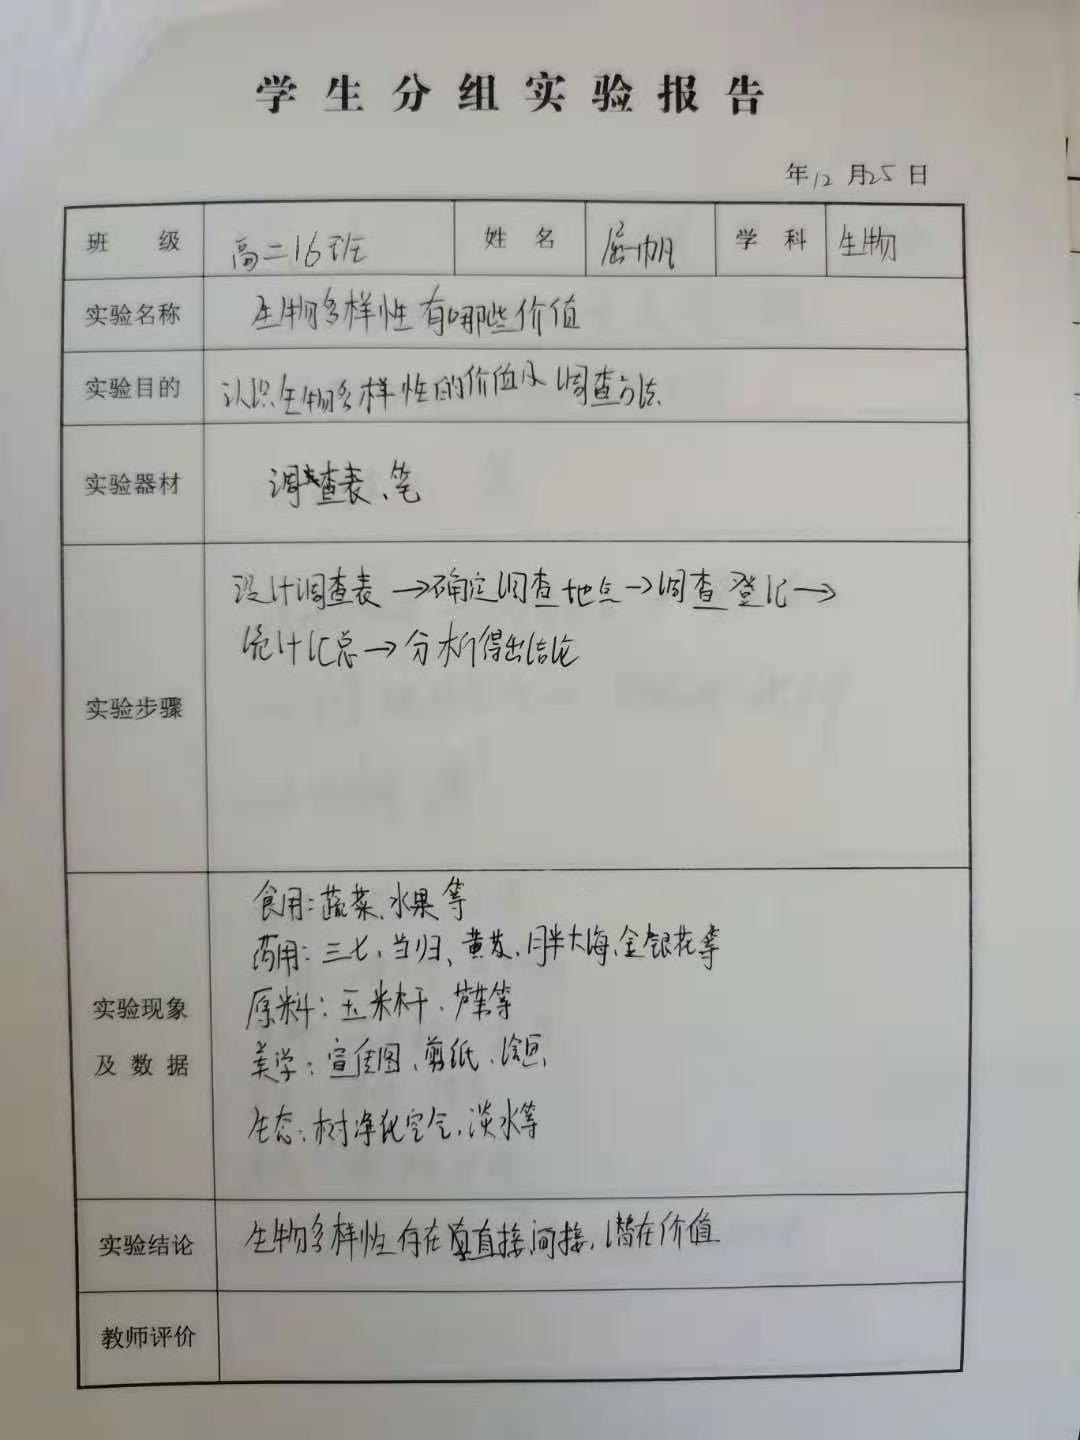 学生分组实验报告
年12月25日
班 级 高二16班 姓 名 屈一帆 学 科 生物
实验名称 生物多样性有哪些价值
实验目的 认识生物多样性的价值及调查方法
实验器材 调查表、笔
实验步骤
设计调查表→确定调查地点→调查登记→
统计汇总→分析得出结论
实验现象
及 数 据
食用:蔬菜、水果等
药用:三七、当归、黄芪、胖大海、金银花等
原料:玉米杆、芦苇等
美学:宣传图、剪纸、绘画
生态:树净化空气、淡水等
实验结论 生物多样性存在直接、间接、潜在价值
教师评价